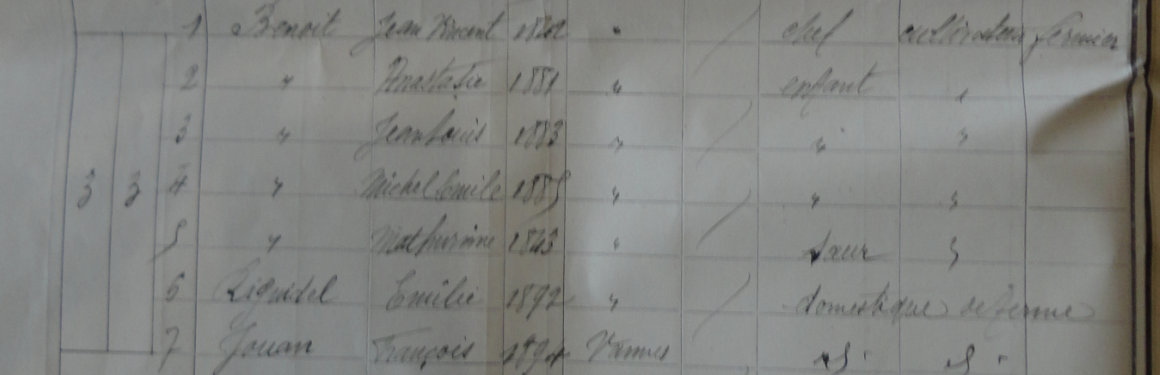 1 Benoit Jean Vincent " chef cultivateur fermier
2 " Anastasie 1881 " enfant "
3 " Jean Louis 1883 " " "
3 3 4 " Michel Emile 1885 " " "
5 " Mathurine 1843 " sœur "
6 Riguidel Emilie 1892 " domestique de ferme
7 Jouan François 1894 Vannes